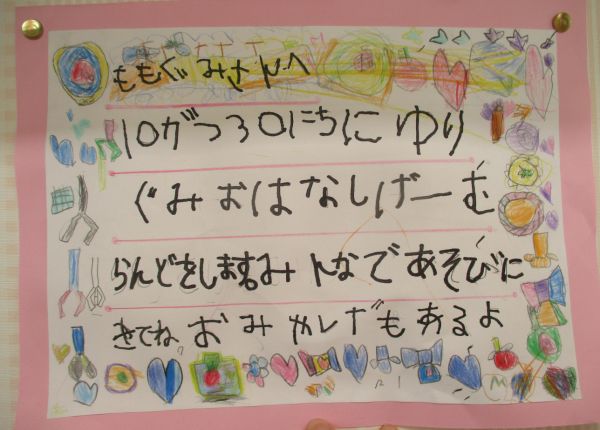 ももぐみさんへ
10がつ30にちにゆり
ぐみおはなしげーむ
らんどをしますみんなであそびに
きてねおみやげもあるよ